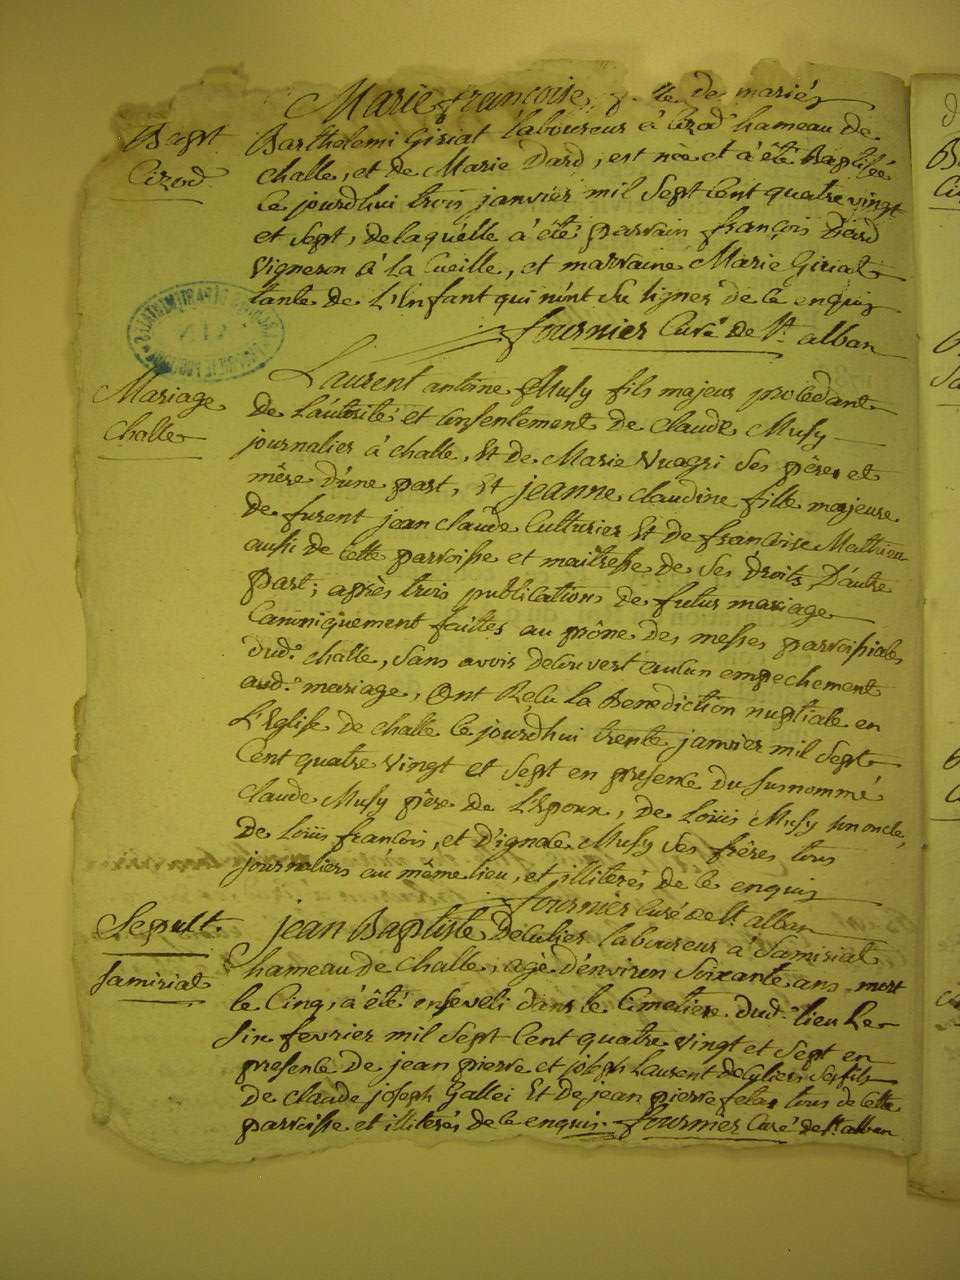 Marie françoise, de mariés
Bapt
Cizod
Barthelemi Giriat laboureur à Cizod hameau de
challe, et de Marie Dard, est née et à été Baptisée
le jourdhui trois janvier mil Sept Cent quatre vingt
et Sept, de laquelle à été parrain françois Dard
Vigneron à la Cueille, et marraine Marie Giriat
tante de L'Enfant qui n'ont Su signer de ce enquis
fournier Curé de St. alban
Mariage
Challe
Laurent antoine Musy fils majeur procedant
de L'autorité et consentement de Claude Musy
journalier à challe, Et de Marie Vuagri Ses père, et
mère d'une part, Et jeanne Claudine fille majeure
de furent jean claude Cutturier Et de francoise Mathieu
aussi de cette parroisse et maitresse de Ses Droits, D'autre
part; après trois publications de futur mariage
Canoniquement faittes au prône des messes parroissiales
dud.t challe, Sans avoir decouvert aucun empechement
aud.t mariage, Ont Reçu la Benediction nuptiale en
L'Eglise de challe le jourdhui trente janvier mil Sept
Cent quatre Vingt et Sept en presence du Surnommé
Claude Musy père de L'Epoux, de Loüis Musy Son oncle,
de Loüis françois, et d'ignace Musy Ses frères tous
journaliers au même lieu, et illiterés de ce enquis
fournier Curé de St. alban
Sepult.
Samiriat
jean Baptiste DecuLier Laboureur à Samiriat
hameau de challe, agé d'environ Soixante ans mort
le Cinq, à été enseveli dans le Cimetiere dud.t lieu Le
Six fevrier mil Sept Cent quatre Vingt et Sept en
presence de jean pierre et joseph Laurent decuLier Ses fils
de claude joseph Gallei Et de jean pierre felas tous de cette
parroisse et illiterés de ce enquis. fournier Curé de St. alban